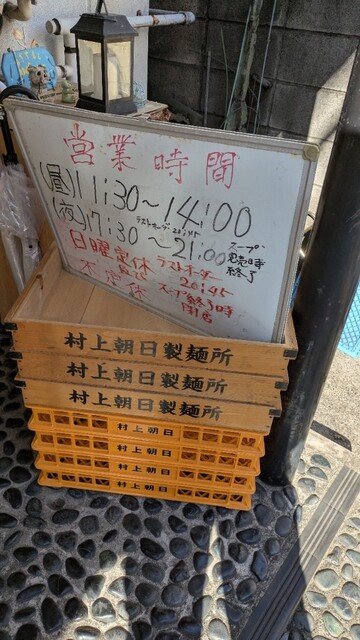 営業時間
(昼)11:30~14:00
(夜)17:30~21:00
ラストオーダー20:45
スープ
完売時
終了
日曜定休
及び
不定休
ラストオーダー
20:45
スープ終了時
閉店
村上朝日製麺所
村上朝日製麺所
村上朝日製麺所
村上朝日
村上朝日
村上朝日
村上朝日